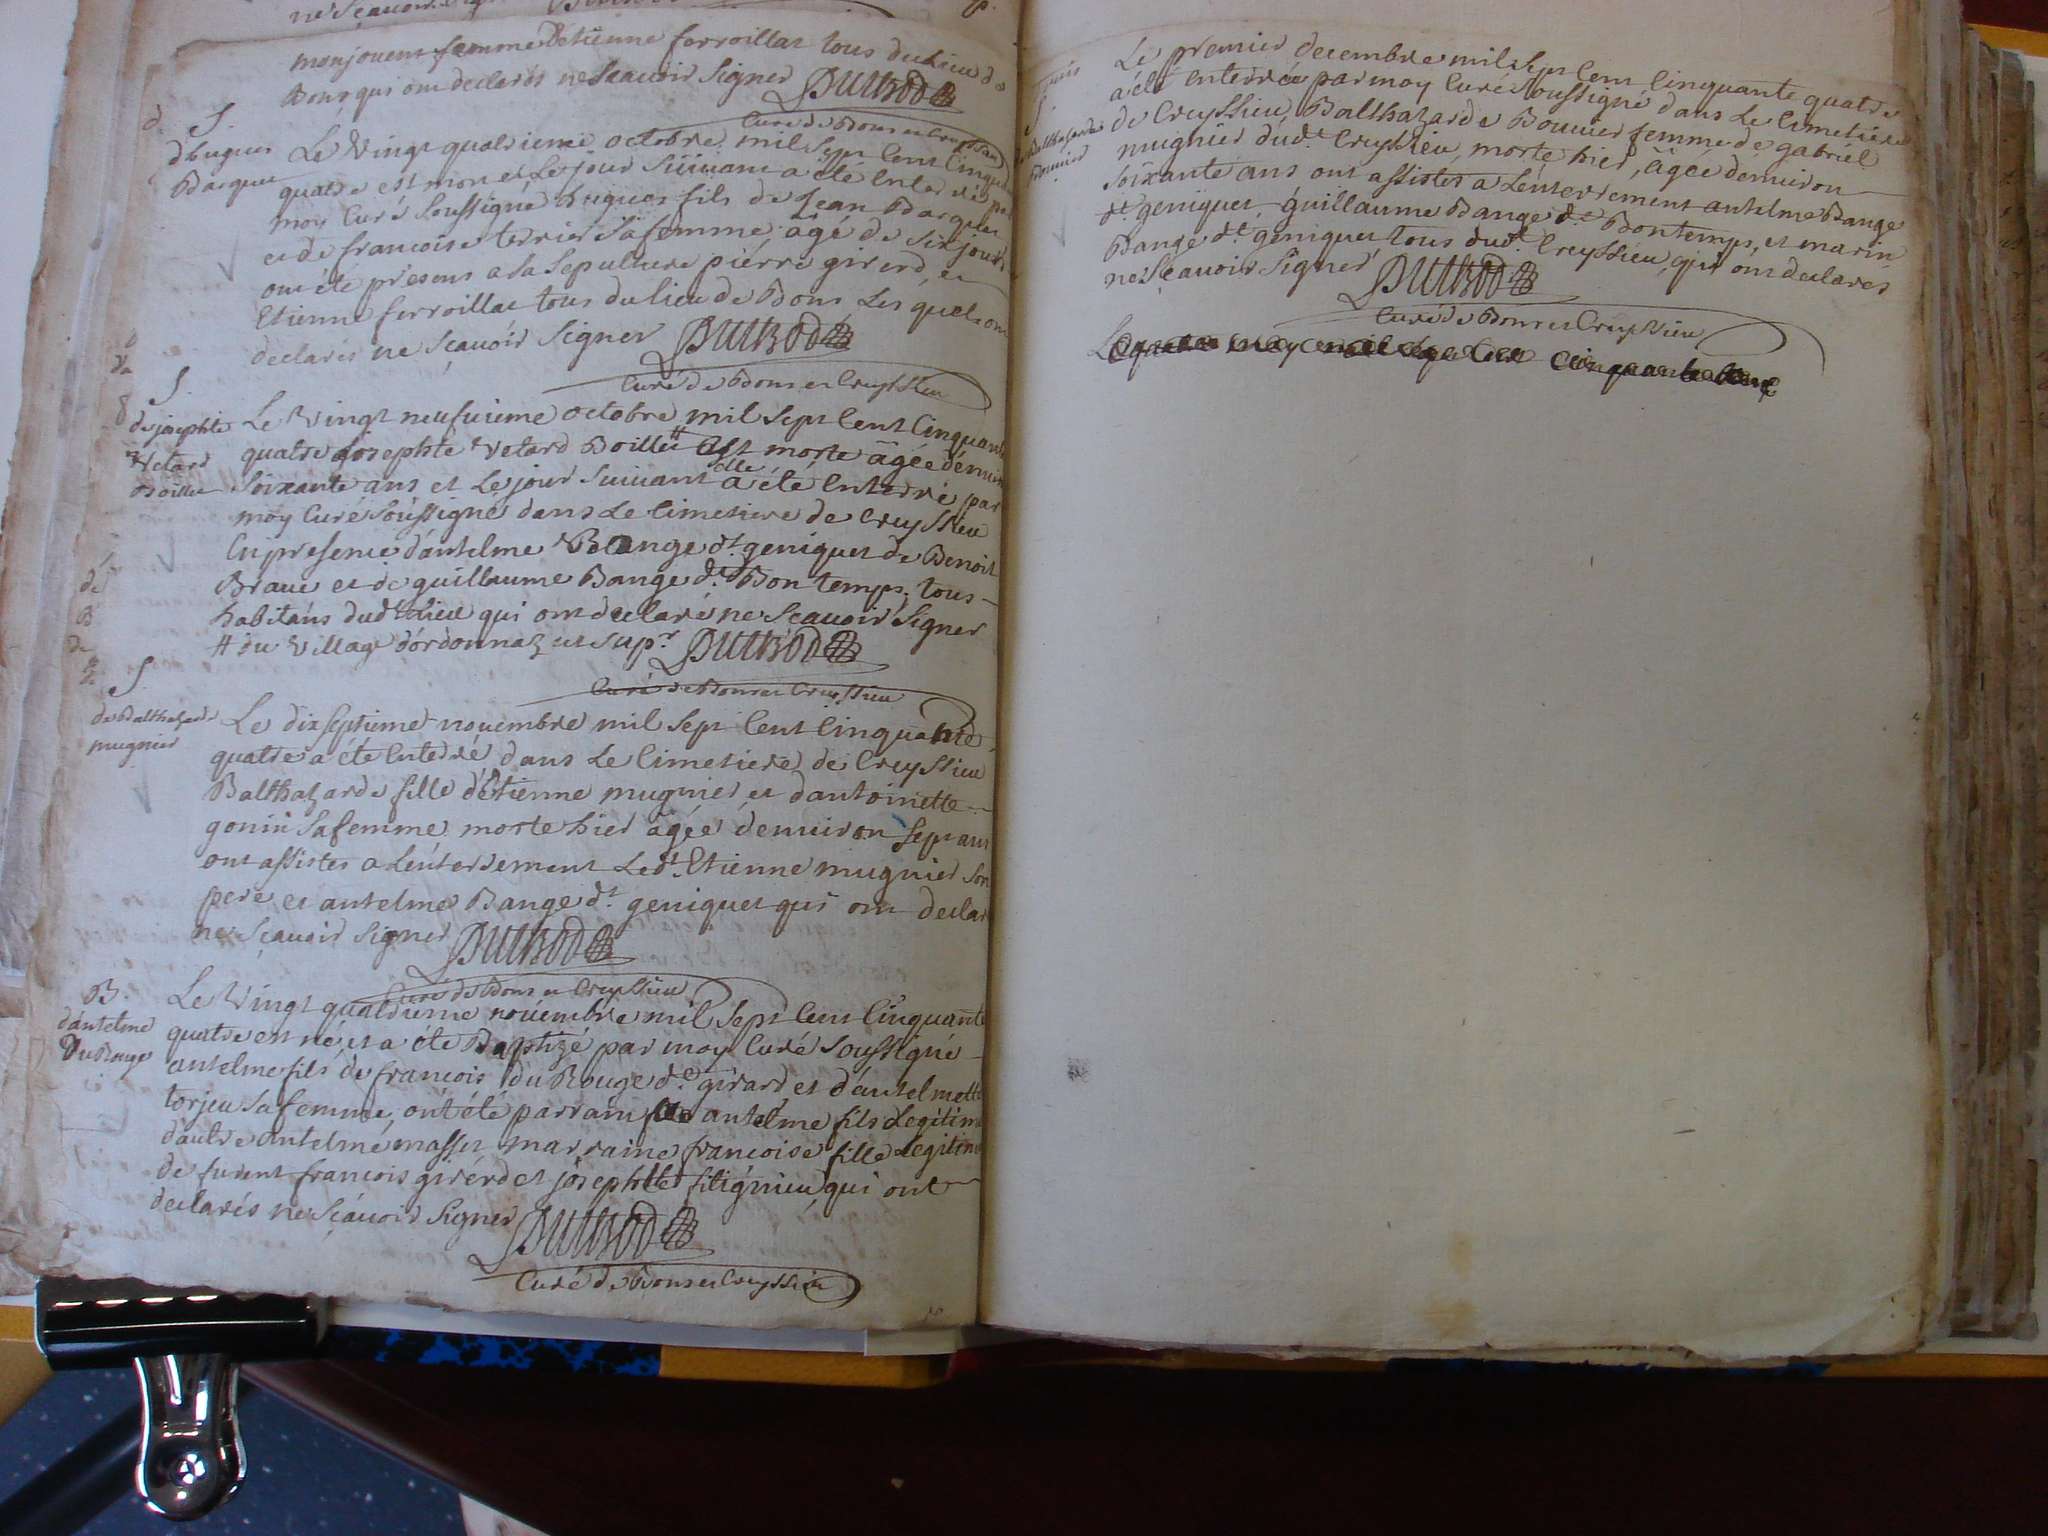 monjouent femme d'etienne ferroillat tous du Lieu de
Bons qui ont declarés ne Sçauoir Signer DUTROD
Curé de Bons et Creyssieu
S.
d'hugues
Barquet
Le Vingt quatrieme octobre mil Sept Cent Cinquante
quatre est mort et Le jour Suiuant a été Enterré par
moy Curé Soussigné hugues fils de Jean Barquet
et de francoise terrier Sa femme, âgé de Six jours
ont été présens a La Sepulture piérre girerd, et
Etienne ferroillat tous du lieu de Bons Les quels ont
declarés ne Sçauoir Signer
Curé de Bons et Creyssieu
S.
de josephte
Vetard
Boillet
Le Vingt neufuieme octobre mil Sept Cent Cinquante
quatre josephte Vetard Boillet # est morte âgée d'enuiron
Soixante ans et Le jour Suiuant elle a été Enterré par
moy Curé Soussigné dans Le Cimetiere de Creyssieu
En presence d'antelme Bange dt. geniquet de Benoit
Braue et de guillaume Bange dt. Bon temps, tous
habitans dudt Lieu qui ont declaré ne Sçauoir Signer
# du Village d'ordonnaz ut supr.
Curé de Bons et Creyssieu
S.
de Balthazarde
mugnier
Le dix Septieme nouembre mil Sept Cent Cinquante
quatre a été Enterré dans Le Cimetiere de Creyssieu
Balthazarde fille d'étienne mugnier et d'antoinette
gonin Sa femme morte hier âgée d'enuiron Sept ans
ont assistés a L'enterrement Ledt. Etienne mugnier Son
pere et antelme Bange dt. geniquet qui ont declar
ne Sçauoir Signer
Curé de Bons et Creyssieu
B.
d'antelme
Du Rouge
Le Vingt quatrieme nouembre mil Sept Cent Cinquante
quatre est né, et a été Baptizé par moy Curé Soussigné
antelme fils de francois Du Rouge dt. girard et d'antelmette
torjeu Sa femme, ont été parrain antelme fils Legitime
d'autre antelme masset marraine francoise fille Legitime
de furent francois girerd et josephte fitignieu, qui ont
declarés ne Sçauoir Signer
Curé de Bons et Creyssieu
S
de Balthazarde
Bouuier
Le premier decembre mil Sept Cent Cinquante quatre
a été Enterrée par moy Curé Soussigné dans Le Cimetiere
de Creyssieu, Balthazarde Bouuier femme de gabriel
mugnier dudt. Creyssieu, morte hier, âgée d'enuiron
Soixante ans ont assistés a L'enterrement antelme Bange
dt. geniquet guillaume Bange dt. Bontemps, et marin
Bange dt. geniquet tous dudt. Creyssieu, qui ont declarés
ne Sçauoir Signer
Curé de Bons et Creyssieu